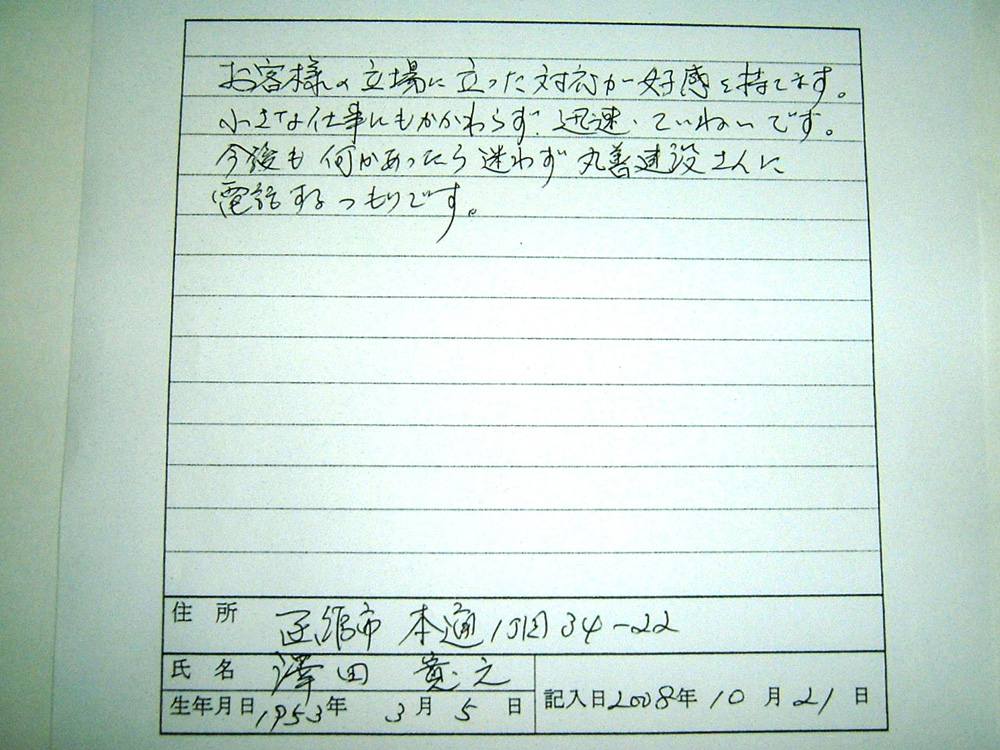 お客様の立場に立った対応が好感を持てます。
小さな仕事にもかかわらず、迅速・ていねいです。
今後も何かあったら迷わず丸善建設さんに
電話するつもりです。
住所 函館市 本通1丁目34-22
氏名 澤田 貴之
生年月日 1953年 3月 5日
記入日 2008年 10月 21日